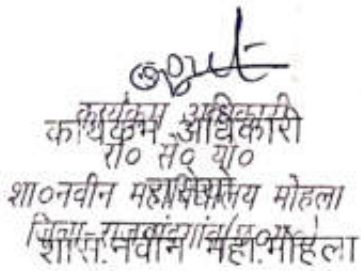 कार्यक्रम अधिकारी
कार्यक्रम अधिकारी
रा० से० यो०
शा०नवीन महाविद्यालय मोहला
जिला-राजनांदगांव
शास.नवीन महा.मोहला